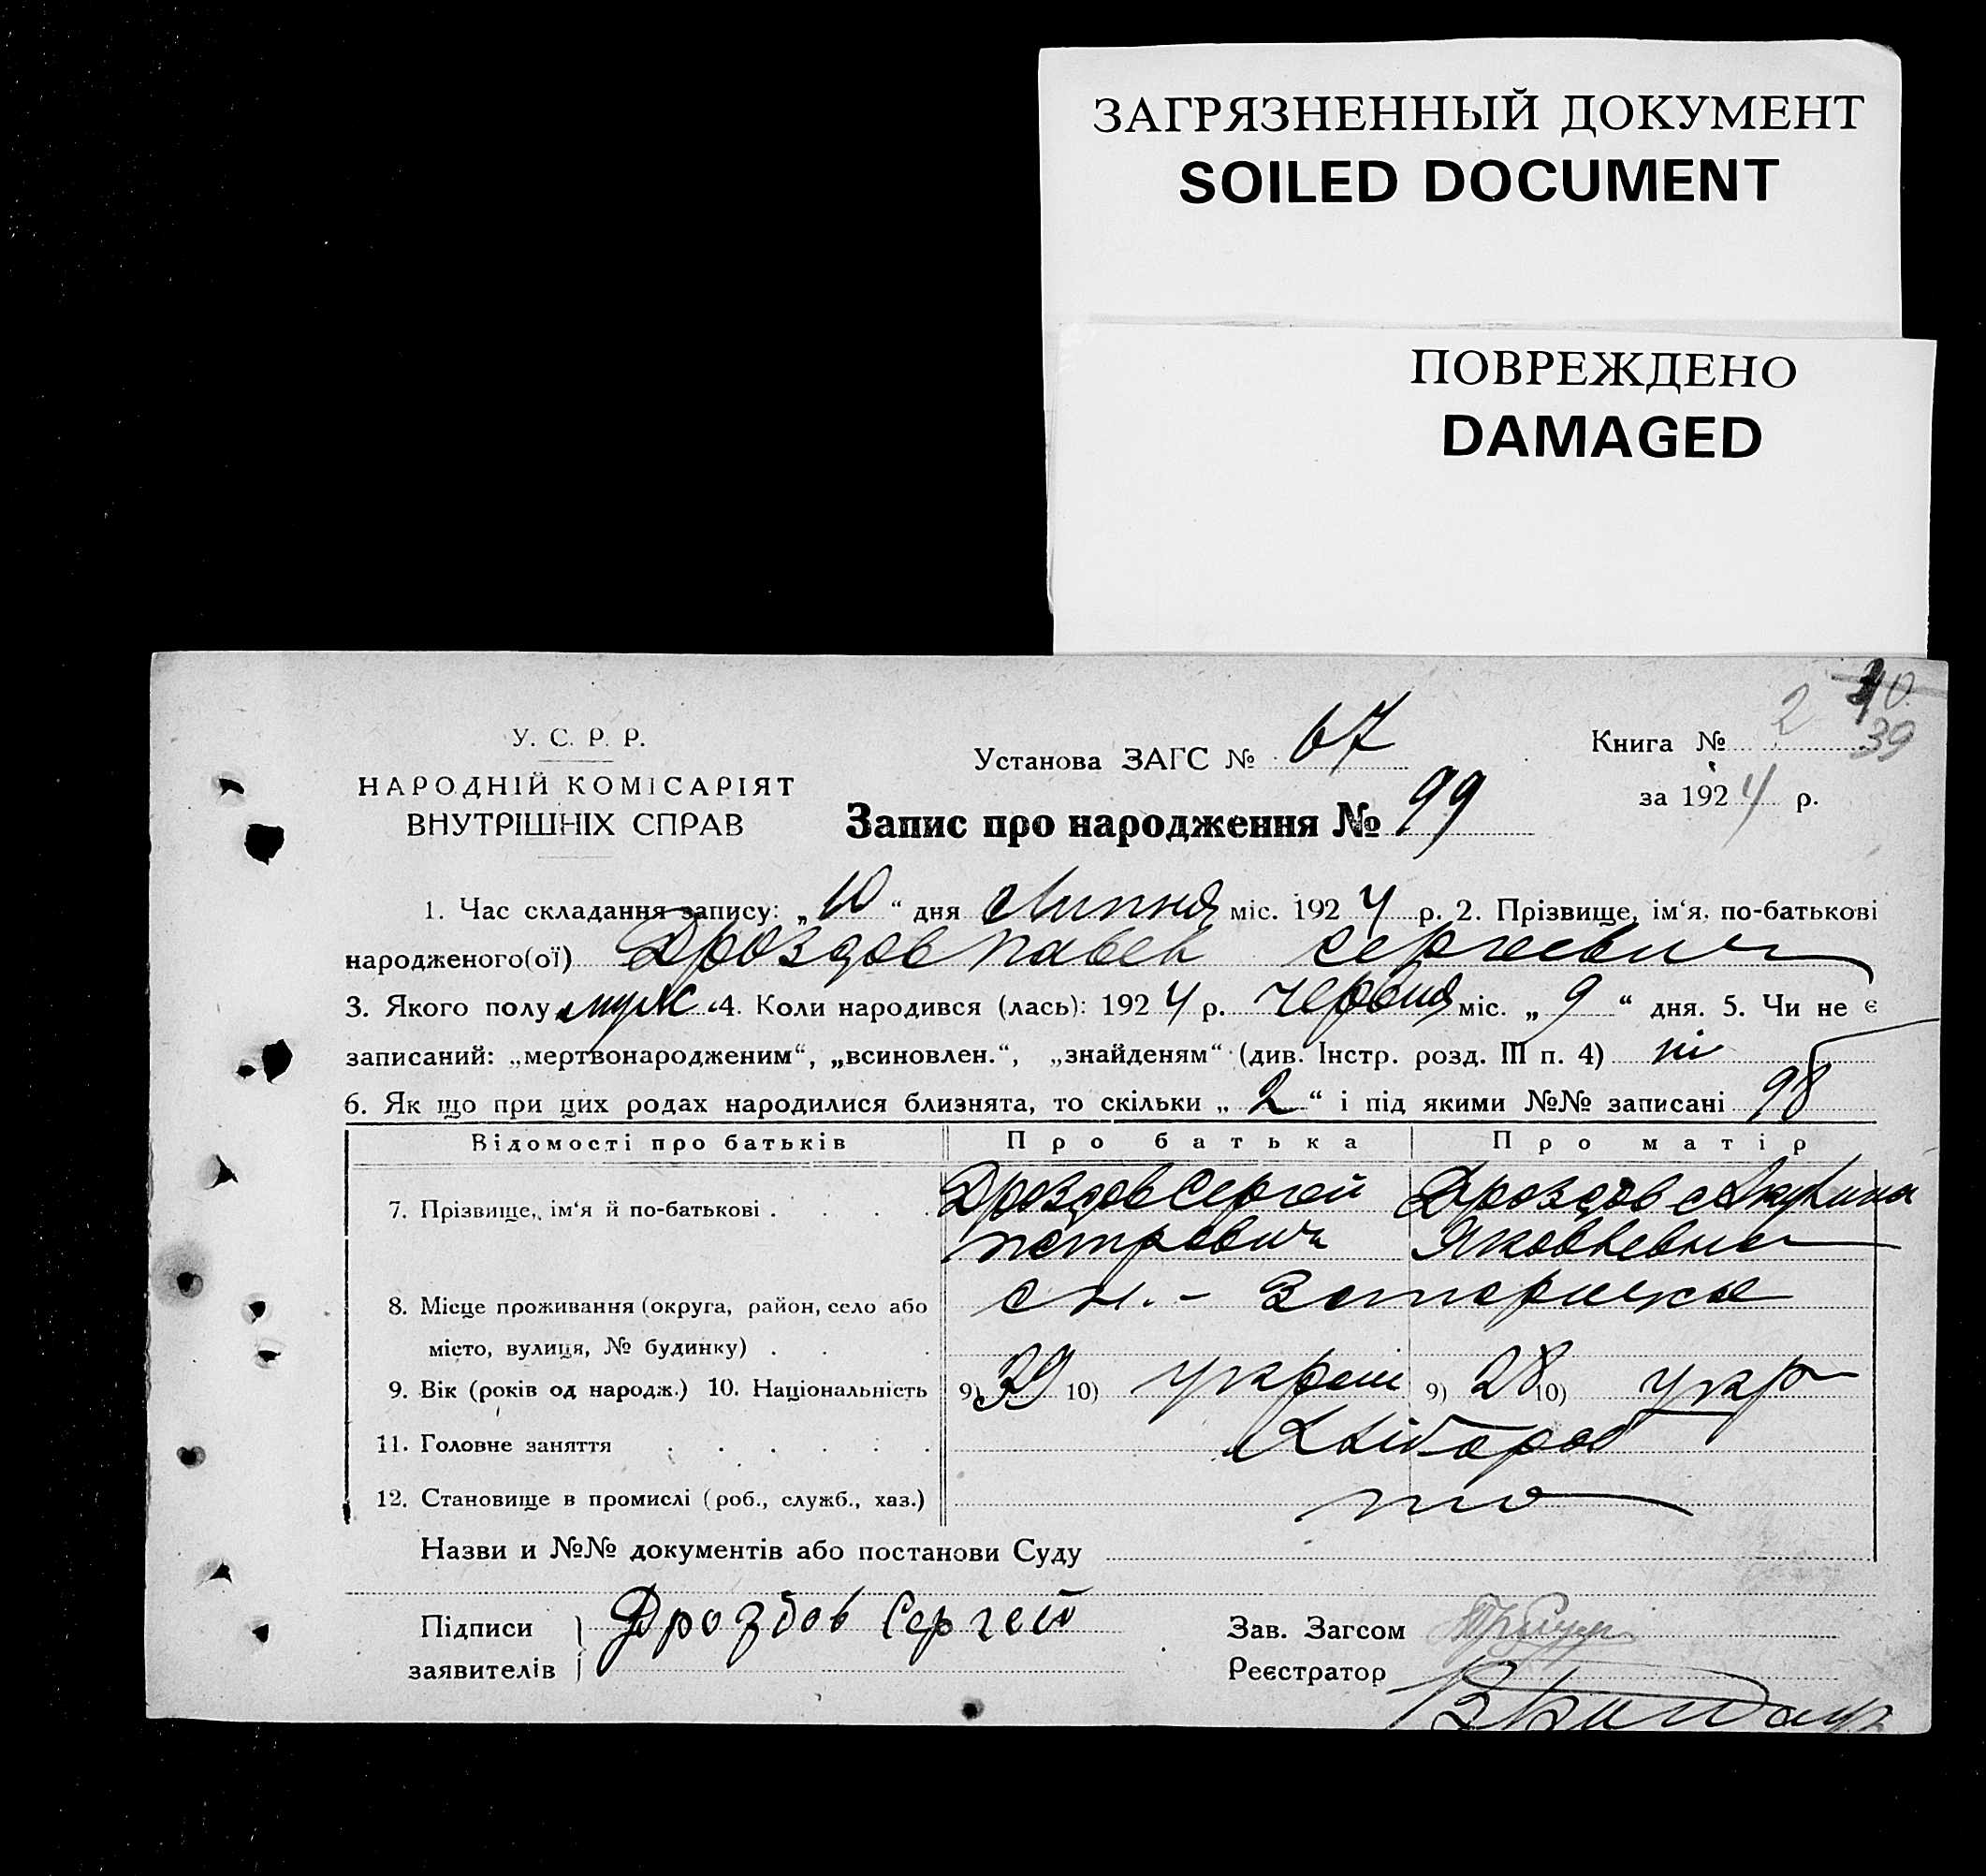 ЗАГРЯЗНЕННЫЙ ДОКУМЕНТ
SOILED DOCUMENT
ПОВРЕЖДЕНО
DAMAGED
2 40
39
У. С. Р. Р.
НАРОДНІЙ КОМІСАРІЯТ
ВНУТРІШНІХ СПРАВ
Установа ЗАГС № 67
Книга №
за 1924 р.
Запис про народження № 99
1. Час складання запису: „10“ дня Липня міс. 1924 р. 2. Прізвище, ім‘я, по-батькові
народженого(ої) Дроздов Павел Сергеевич
3. Якого полу муж. 4. Коли народився (лась): 1924 р. Червня міс. „9“ дня. 5. Чи не є
записаний: „мертвонародженим“, „всиновлен.“, „знайденям“ (див. Інстр. розд. III п. 4) ні
6. Як що при цих родах народилися близнята, то скільки „2“ і під якими №№ записані 98
Відомості про батьків Про батька Про матір
7. Прізвище, ім‘я й по-батькові . . . . Дроздов Сергей Дроздова Акулина
Петрович Яковлевна
8. Місце проживання (округа, район, село або
місто, вулиця, № будинку) . . .
9. Вік (років од народж.) 10. Національність 9) 39 10) 9) 28 10) укр
11. Головне заняття . . . . . . Хлібороб
12. Становище в промислі (роб., служб., хаз.)
Назви и №№ документів або постанови Суду
Підписи Дроздов Сергей
заявителів
Зав. Загсом
Реєстратор